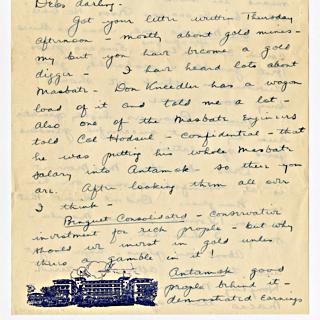 Debs darling -
Got your letter written Thursday
afternoon - mostly about gold mines -
my but you have become a gold
digger - I have heard lots about
Masbate - Don Kneedler has a wagon
load of it and told me a lot -
also one of the Masbate Engineers
told Col Hodsul - confidential - that
he was putting his whole Masbate
salary into Antamok - so there you
are. After looking them all over
I think -
Benguet Consolidated - conservative
investment for rich people - but why
should we invest in gold unless
there's a gamble in it!
Antamok - good
people behind it -
demonstrated earnings